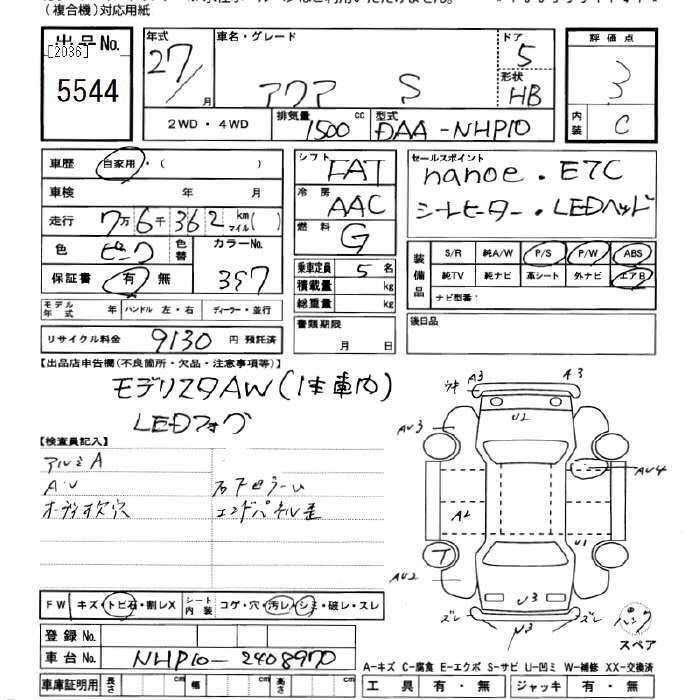 (複合機)対応用紙
出品No.
[2036]
5544
年式
27/
月
車名・グレード
アクア S
ドア
5
形状
HB
評価点
3
内装
C
2WD・4WD
排気量
1500
cc
型式
DAA-NHP10
車歴
自家用・( )
車検 年 月
走行 7万6千362 km マイル( )
色 ピンク
色替
カラーNo.
3S7
保証書 有・無
シフト
FAT
冷房
AAC
燃料
G
乗車定員 5 名
積載量 kg
総重量 kg
書類期限
月 日
セールスポイント
nanoe・ETC
シートヒーター・LEDヘッド
装備品
S/R 純A/W P/S P/W ABS
純TV 純ナビ 革シート 外ナビ エアB
ナビ型番:
後日品
モデル年式 年 ハンドル 左・右 ディーラー・並行
リサイクル料金 9130 円 預託済
【出品店申告欄(不良箇所・欠品・注意事項等)】
モデリスタAW(1本車内)
LEDフォグ
【検査員記入】
アルミA
AU
オーディオ欠穴
右下ピラーム
エンドパネル歪
A3
A3
U2
AU3
AU4
A2
U1
T
AU2
U3
ズレ
ズレ
U3
スペア
FW キズ・トビ石・割レX
シート内装 コゲ・穴・汚レ・シミ・破レ・スレ
登録No.
車台No. NHP10-2408970
車庫証明用 長さ cm 幅 cm 高さ cm
A-キズ C-腐食 E-エクボ S-サビ U-凹ミ W-補修 XX-交換済
工具 有・無 ジャッキ 有・無